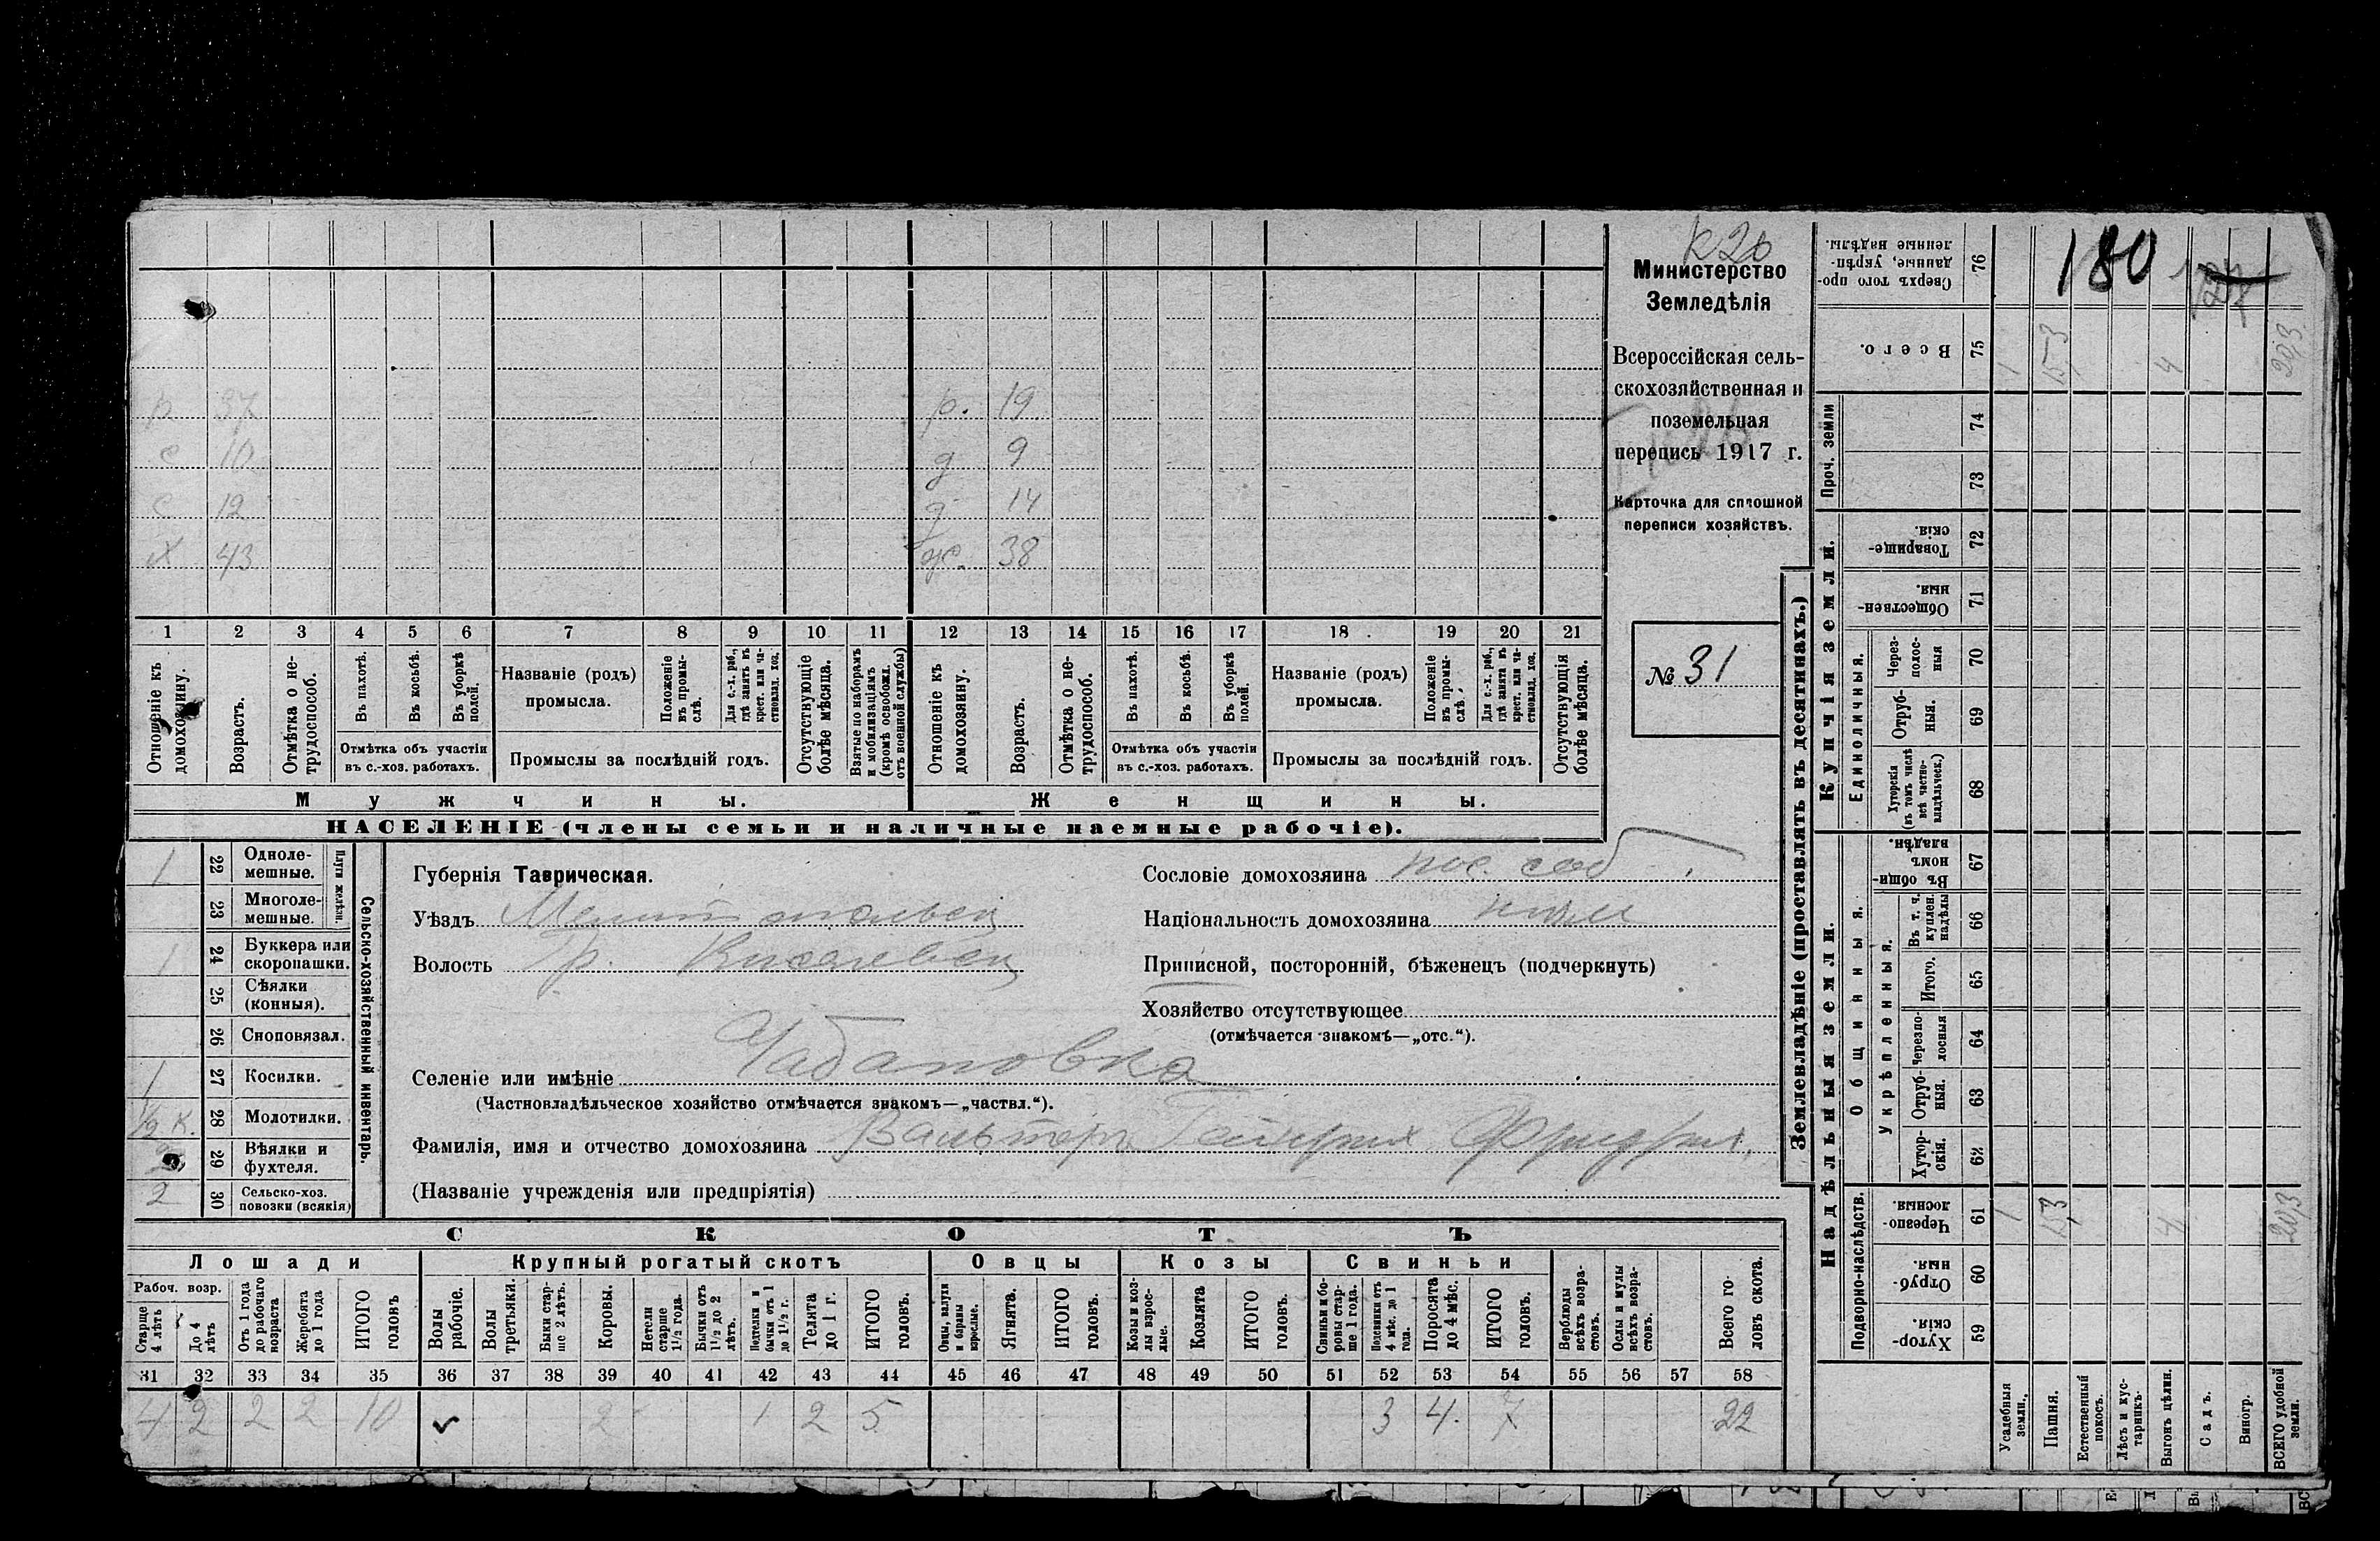 к 26
Министерство
Земледѣлія
Всероссійская сель-
скохозяйственная и
поземельная
перепись 1917 г.
Карточка для сплошной
переписи хозяйствъ.
№ 31
р 37 р. 19
с 10 д 9
с 12 д 14
х 43 ж. 38
1 2 3 4 5 6 7 8 9 10 11 12 13 14 15 16 17 18 19 20 21
Отношеніе къ домохозяину.
Возрастъ.
Отмѣтка о не-трудоспособ.
Въ пахотѣ.
Въ косьбѣ.
Въ уборкѣ полей.
Названіе (родъ) промысла.
Положеніе въ промы-слѣ.
Для с.-х. раб., гдѣ занятъ въ крест. или ча-стновлад. хоз.
Отсутствующіе болѣе мѣсяца.
Взятые по наборамъ и мобилизаціямъ (кромѣ освобожд. отъ военной службы)
Отношеніе къ домохозяину.
Возрастъ.
Отмѣтка о не-трудоспособ.
Въ пахотѣ.
Въ косьбѣ.
Въ уборкѣ полей.
Названіе (родъ) промысла.
Положеніе въ промы-слѣ.
Для с.-х. раб., гдѣ занята въ крест. или ча-стновлад. хоз.
Отсутствующія болѣе мѣсяца.
Отмѣтка объ участіи въ с.-хоз. работахъ.
Промыслы за послѣдній годъ.
Отмѣтка объ участіи въ с.-хоз. работахъ.
Промыслы за послѣдній годъ.
Мужчины.
Женщины.
НАСЕЛЕНІЕ (члены семьи и наличные наемные рабочіе).
Сельско-хозяйственный инвентарь.
Плуги желѣзн.
1 22 Одноле-мешные.
23 Многоле-мешные.
1 24 Буккера или скоропашки.
25 Сѣялки (конныя).
26 Сноповязал.
1 27 Косилки.
1/2 к. 28 Молотилки.
29 Вѣялки и фухтеля.
2 30 Сельско-хоз. повозки (всякія)
Губернія Таврическая.
Уѣздъ
Волость Гр.
Селеніе или имѣніе Чабановка
(Частновладѣльческое хозяйство отмѣчается знакомъ—„частвл.“).
Фамилія, имя и отчество домохозяина Вальтеръ Гейнрих Фридрих.
(Названіе учрежденія или предпріятія)
Сословіе домохозяина пос. соб
Національность домохозяина нѣм
Приписной, посторонній, бѣженецъ (подчеркнуть)
Хозяйство отсутствующее
(отмѣчается знакомъ—„отс.“).
СКОТЪ
Лошади
Крупный рогатый скотъ
Овцы
Козы
Свиньи
Рабоч. возр.
Старше 4 лѣтъ
До 4 лѣтъ
Отъ 1 года до рабочаго возраста
Жеребята до 1 года
ИТОГО головъ
Волы рабочіе.
Волы третьяки.
Быки стар-ше 2 лѣтъ.
Коровы.
Нетели старше 1 1/2 года.
Бычки отъ 1 1/2 до 2 лѣтъ.
Подтелки и бычки отъ 1 до 1 1/2 г.
Телята до 1 г.
ИТОГО головъ.
Овцы, валухи и бараны взрослые.
Ягнята.
ИТОГО головъ.
Козы и коз-лы взрос-лые.
Козлята
ИТОГО головъ.
Свиньи и бо-ровы стар-ше 1 года.
Подсвинки отъ 4 мѣс. до 1 года.
Поросята до 4 мѣс.
ИТОГО головъ.
Верблюды всѣхъ возра-стовъ.
Ослы и мулы всѣхъ возра-стовъ.
Всего го-ловъ скота.
31 32 33 34 35 36 37 38 39 40 41 42 43 44 45 46 47 48 49 50 51 52 53 54 55 56 57 58
4 2 2 2 10 2 1 2 5 3 4 7 22
Землевладѣніе (проставлять въ десятинахъ.)
Надѣльныя земли.
Купчія земли.
Проч. земли
Подворно-наслѣдств.
Общинныя.
Укрѣпленныя.
Единоличныя.
180
76 Сверхъ того про-данные, укрѣп-ленные надѣлы.
75 Всего. 1 153 4 203
74
73
72 Товарище-скія.
71 Обществен-ныя.
70 Через-полос-ныя
69 Отруб-ныя.
68 Хуторскія (въ томъ числѣ всѣ частно-владѣльческ.)
67 Въ общи-номъ владѣн.
66 Въ т. ч. куплен. надѣлы
65 Итого.
64 Черезпо-лосныя
63 Отруб-ныя.
62 Хутор-скія.
61 Черезпо-лосныя. 1 153 4 203
60 Отруб-ныя.
59 Хутор-скія.
Усадебныя земли.
Пашня.
Естественный покосъ.
Лѣсъ и кус-тарникъ.
Выгонъ цѣлин.
Садъ.
Виногр.
ВСЕГО удобной земли.